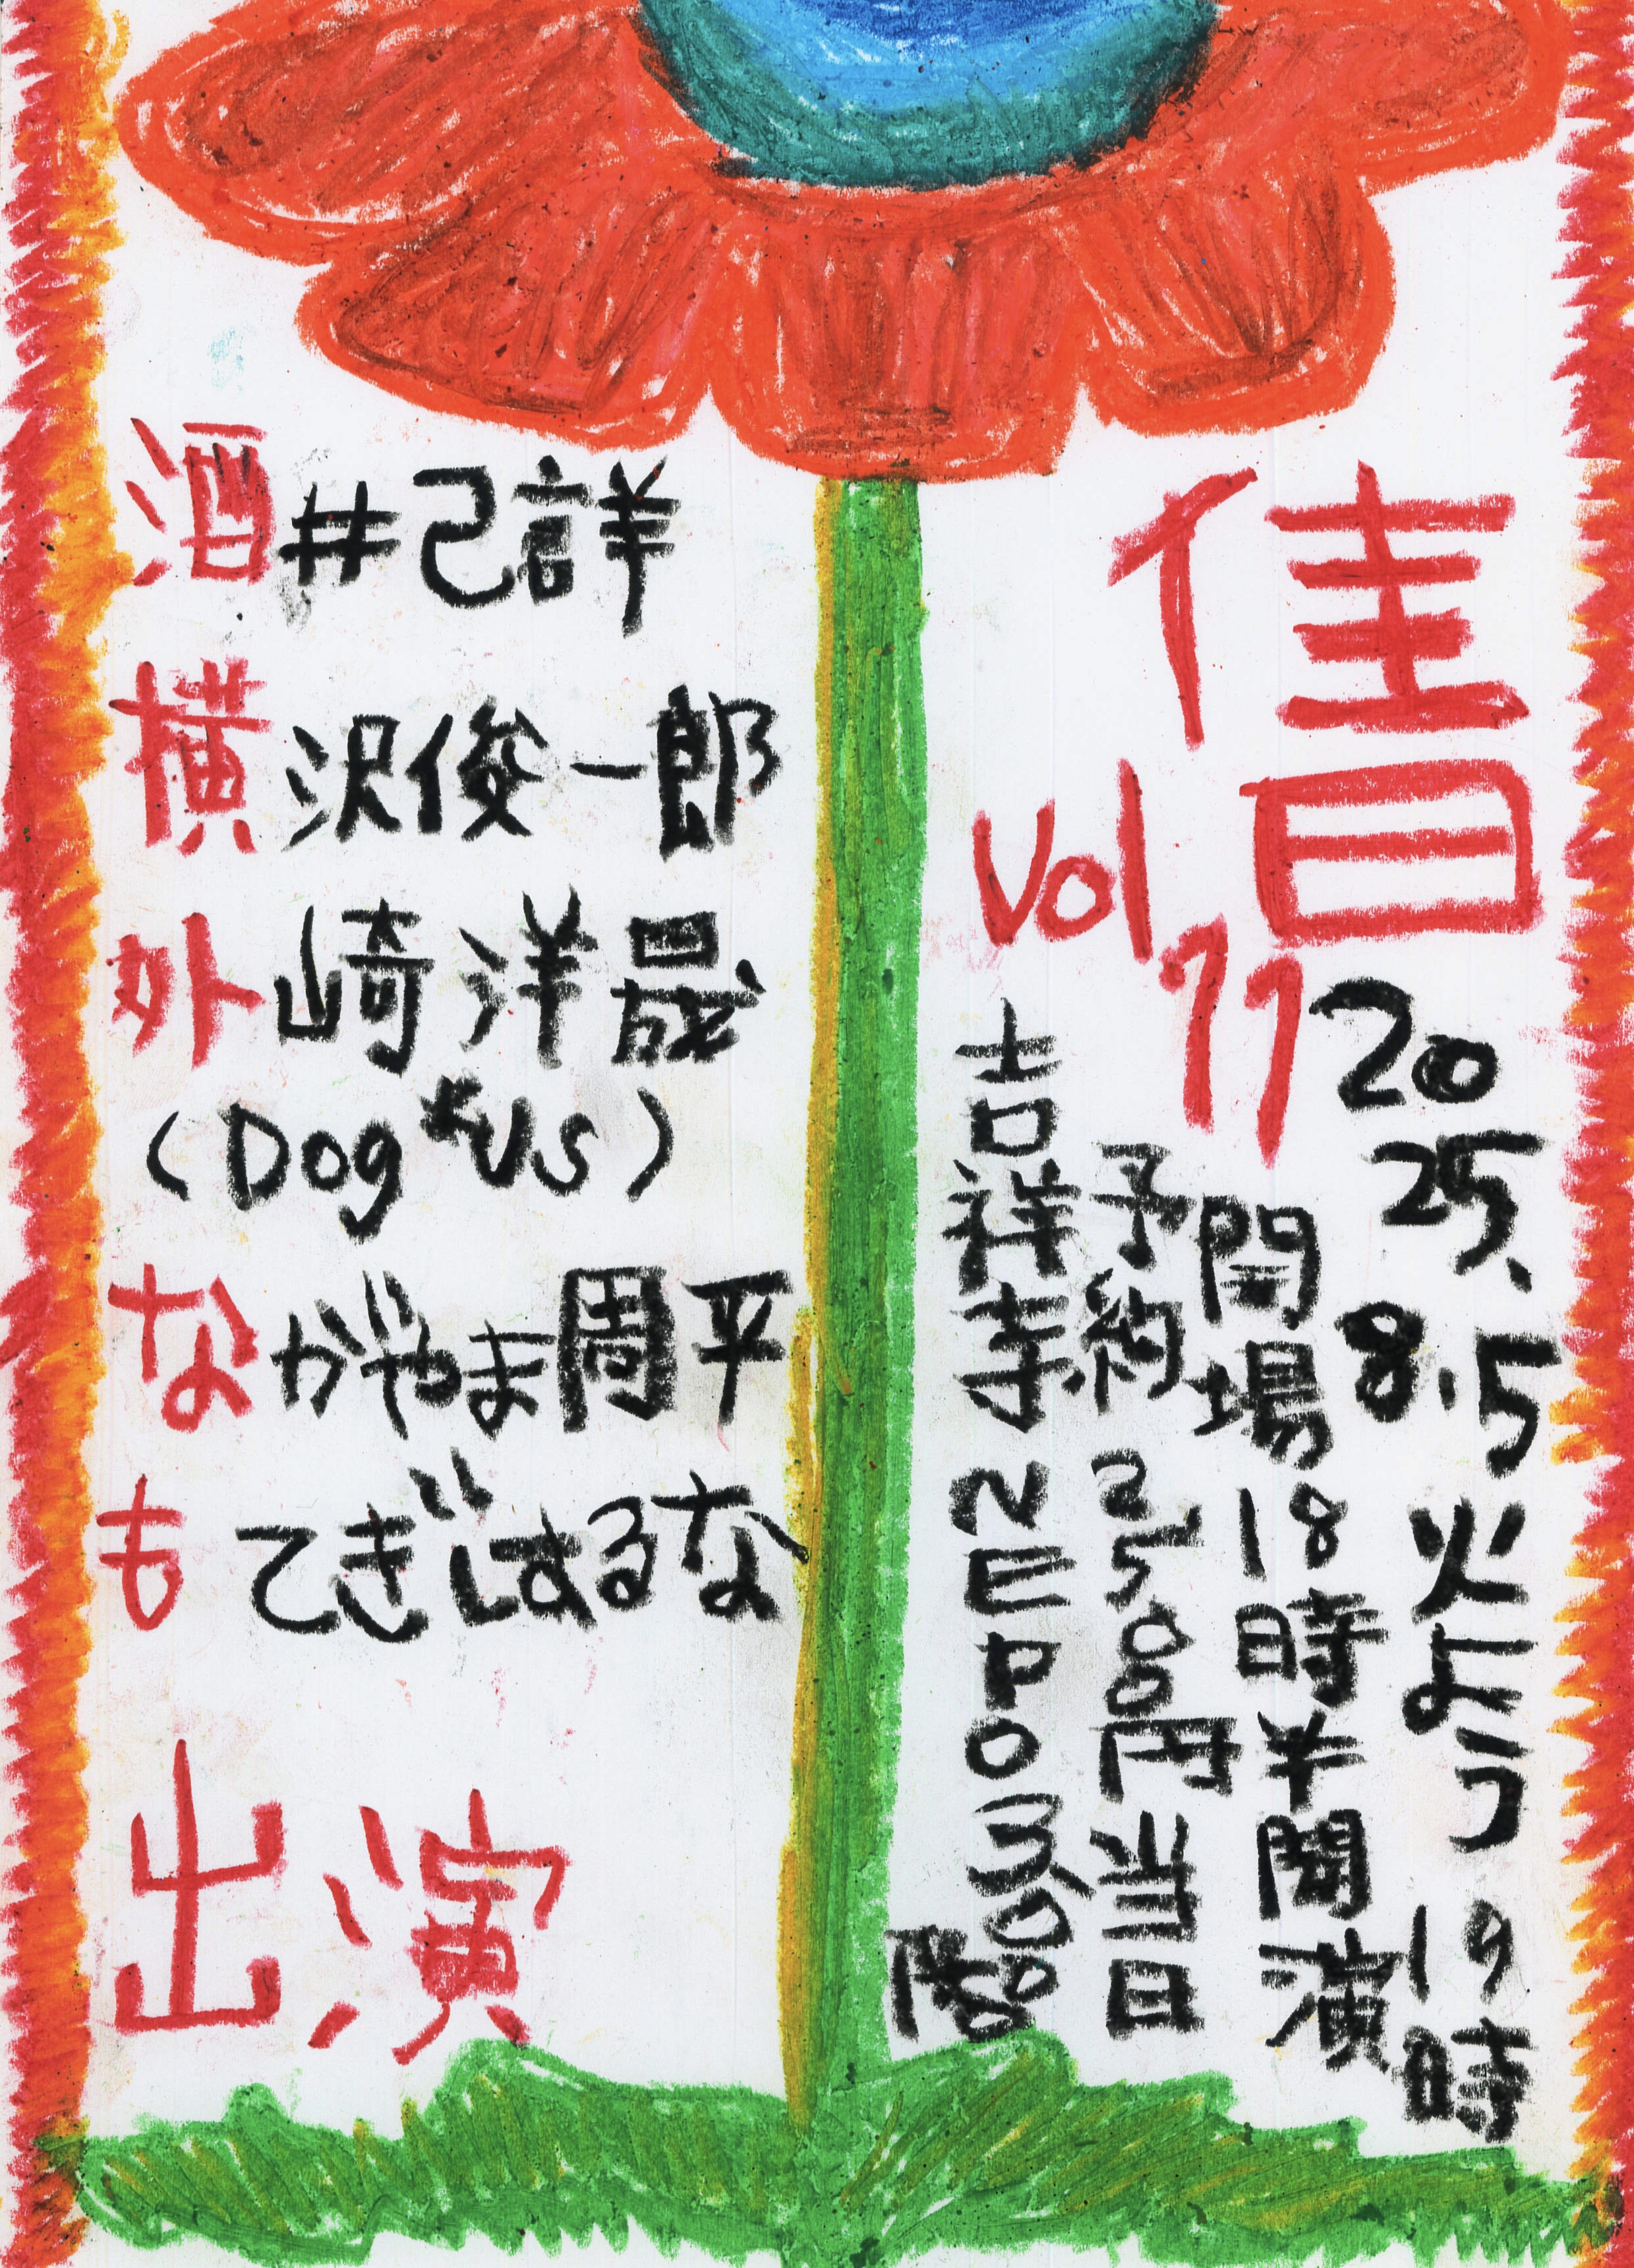 佳日
vol 11
2025.
8.5
火よう
開場18時半開演
19時
予約2500円当日
吉祥寺NEPO
酒井己詳
横沢俊一郎
外崎洋晟
(Dog*Us)
なかやま周平
もてぎはるな
出演